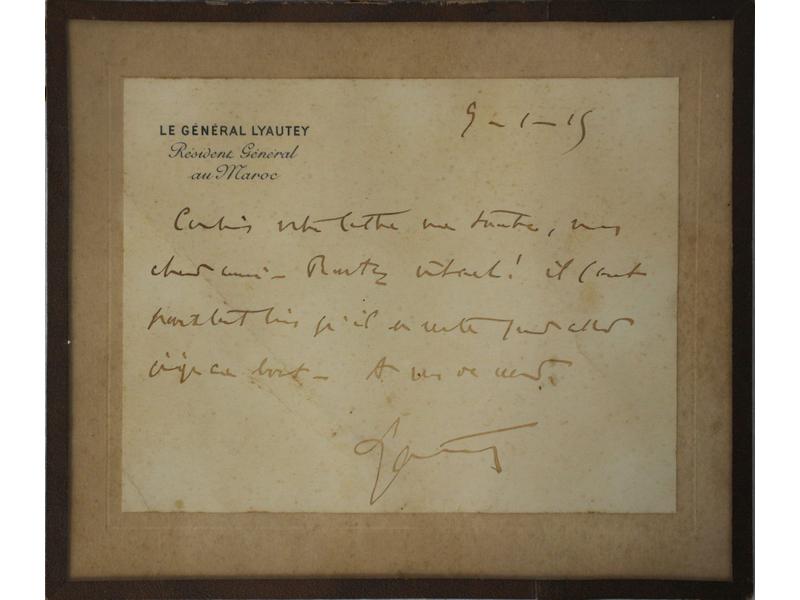 LE GÉNÉRAL LYAUTEY
Résident Général
au Maroc
9-1-15
Combien votre lettre me touche, mon
cher ami - Restez ! il faut
pourtant bien qu'il en reste pour aller
jusqu'au bout - A vous de cœur.
Lyautey